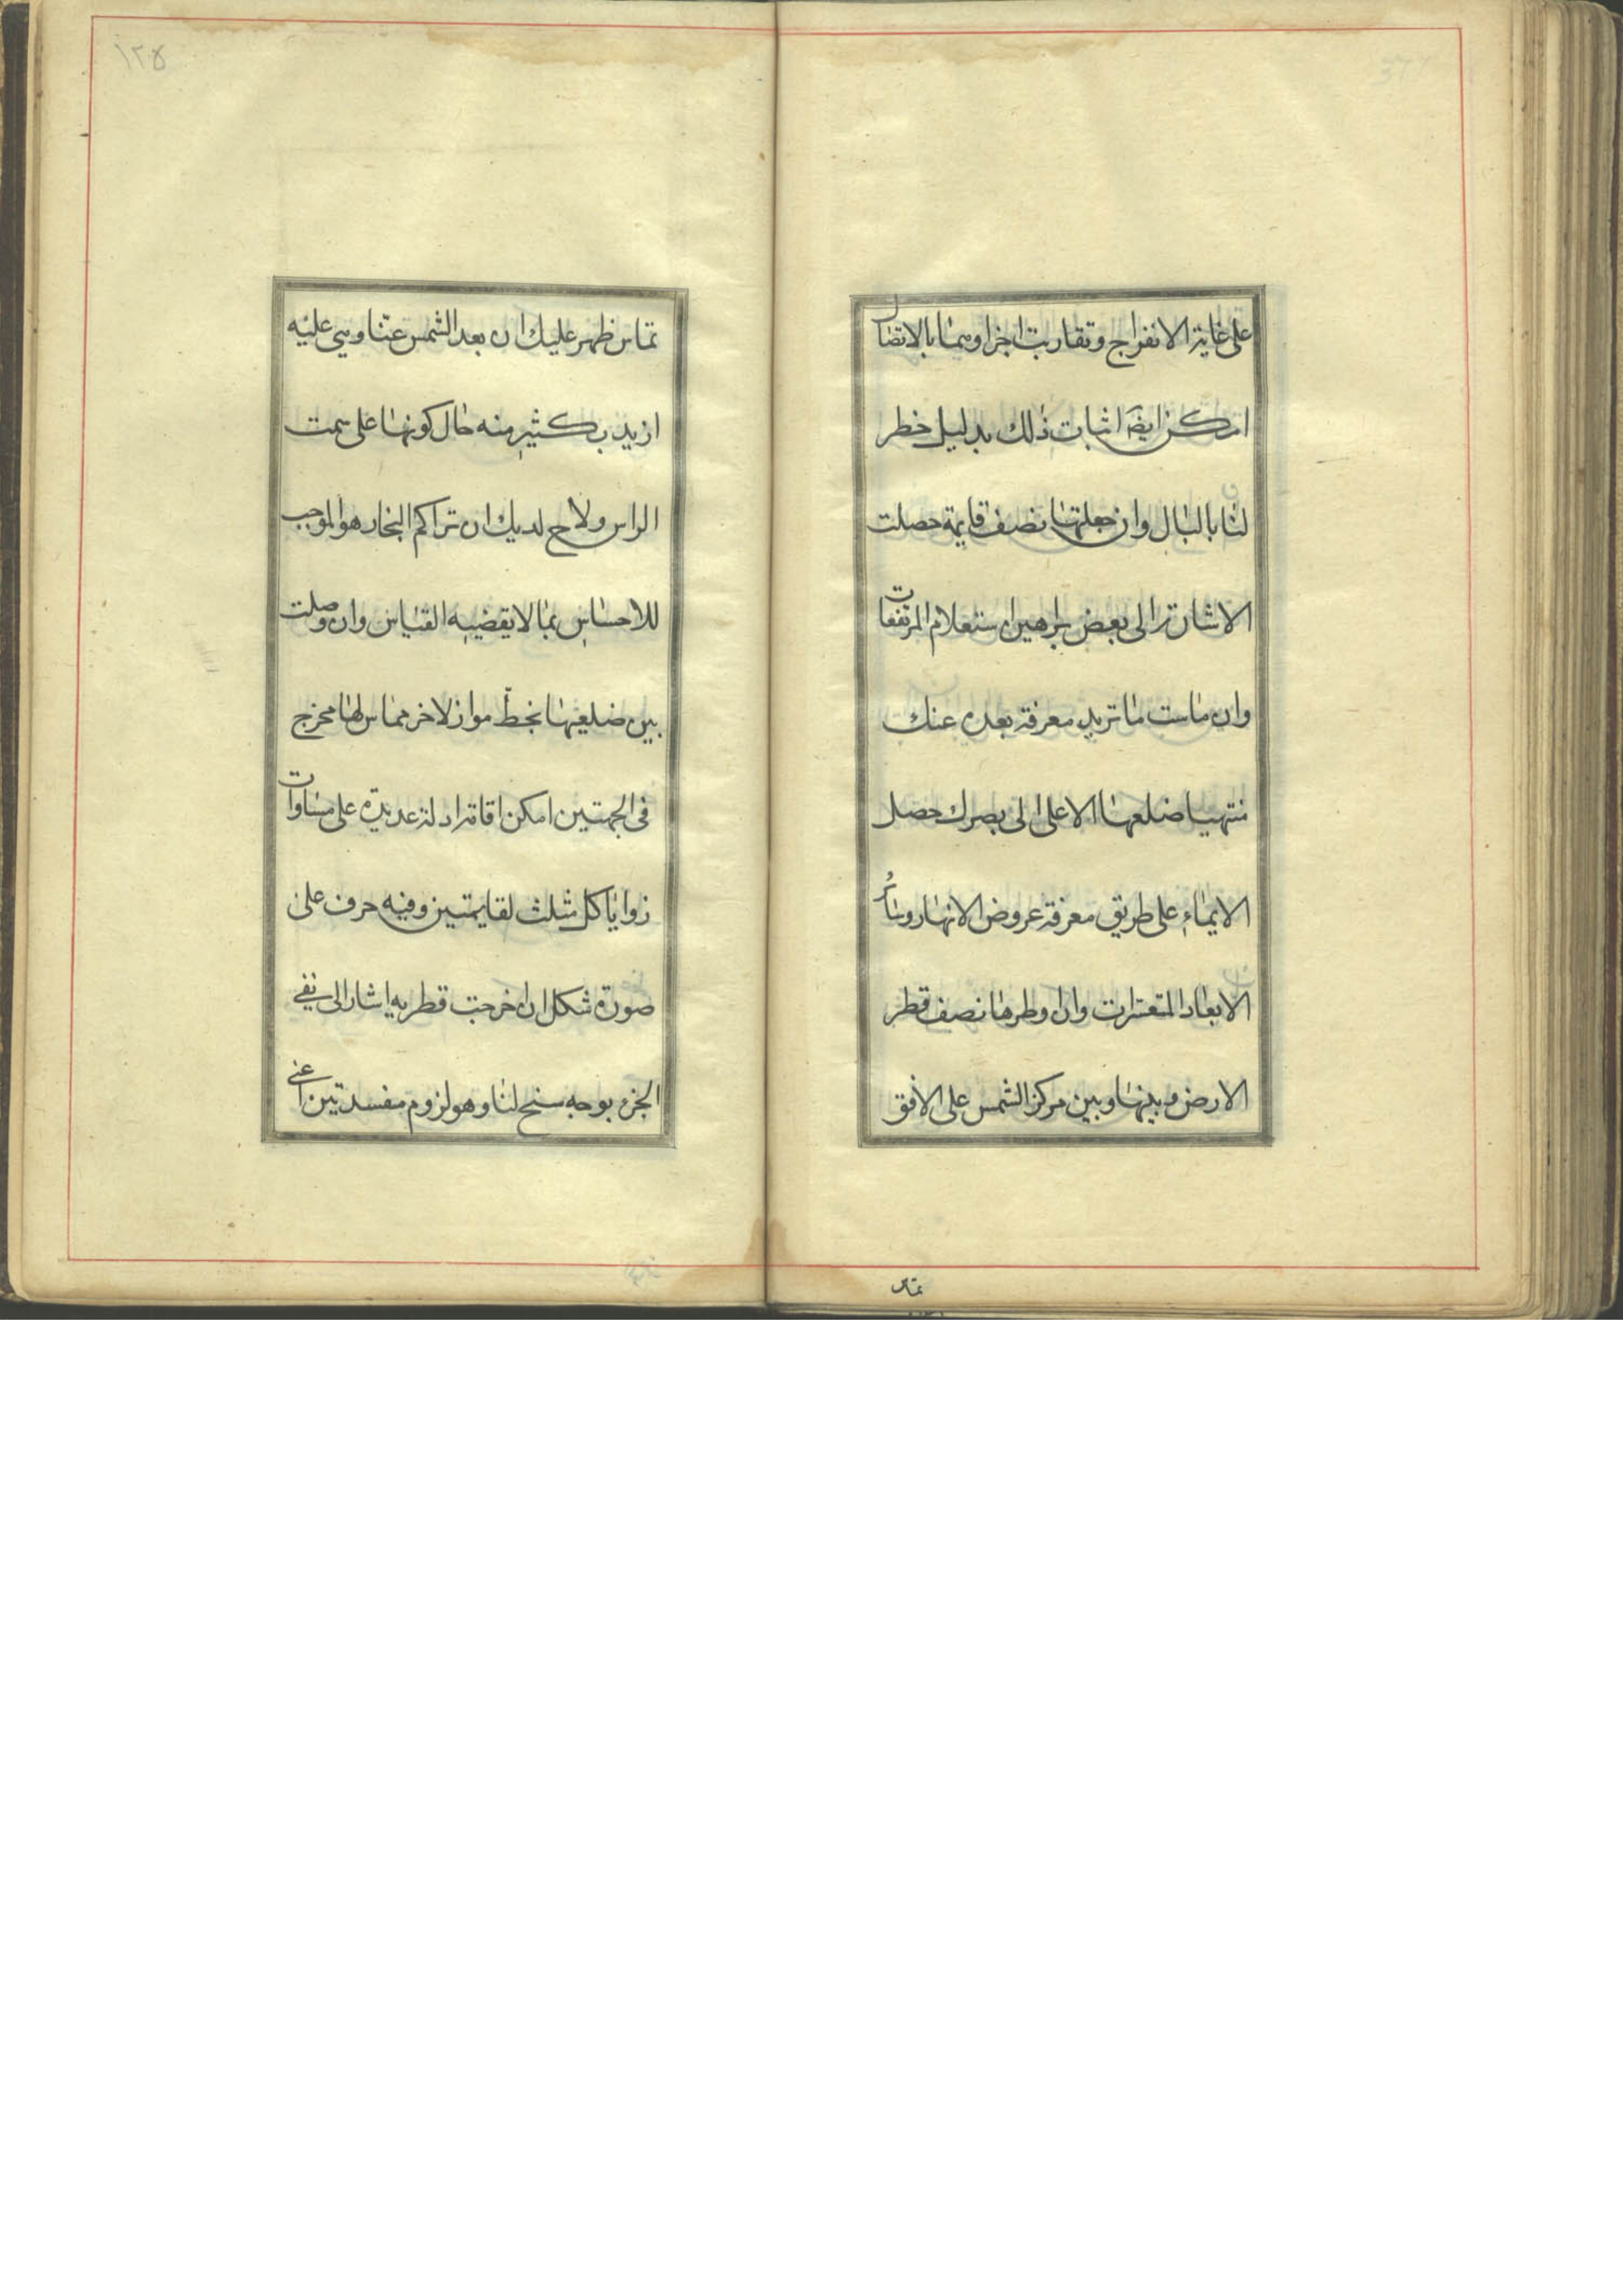 على غاية الانفراج وتقاربت اجزاوهما بالاتصال
امكن ايضا اثبات ذلك بدليل خطر
لنا بالبال وان جعلتها نصف قايمة حصلت
الاشارة الى بعض براهين استعلام المرتفعات
وان ماست ما تريد معرفة بعده عنك
منتهيا ضلعها الاعلى الى بصرك حصل
الايماء على طريق معرفة عروض الانهار وسائر
الابعاد المتعسرات وان وطرها نصف قطر
الارض وبينها وبين مركز الشمس على الافق
تماس
١٢٥
تماس ظهر عليك ان بعد الشمس عنا وهي عليه
ازيد بكثير منه حال كونها على سمت
الراس ولاح لديك ان تراكم البخار هو الموجب
للاحساس بما لا يقضيه القياس وان وصلت
بين ضلعيها بخط مواز لاخر مماس لها مخرج
في الجهتين امكن اقامة ادلة عديدة على مساوات
زوايا كل مثلث لقايمتين وفيه حرف على
صورة شكل ان اخرجت قطريه اشار الى نفي
الجزء بوجه سنح لنا وهو لزوم مفسدتين اعني